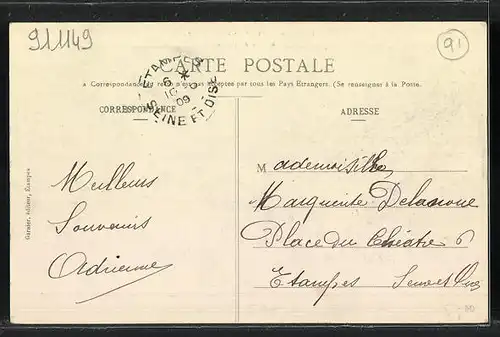 911149
91
CARTE POSTALE
La Correspondance au recto n'est pas acceptée par tous les Pays Étrangers. (Se renseigner à la Poste.
ETAMPES
6
09
SEINE ET OISE
CORRESPONDANCE
ADRESSE
Garnier, éditeur, Étampes
Meilleurs
Souvenirs
Adrienne
Mademoiselle
Marguerite Delanoue
Place du Théâtre 6
Etampes Seine et Oise